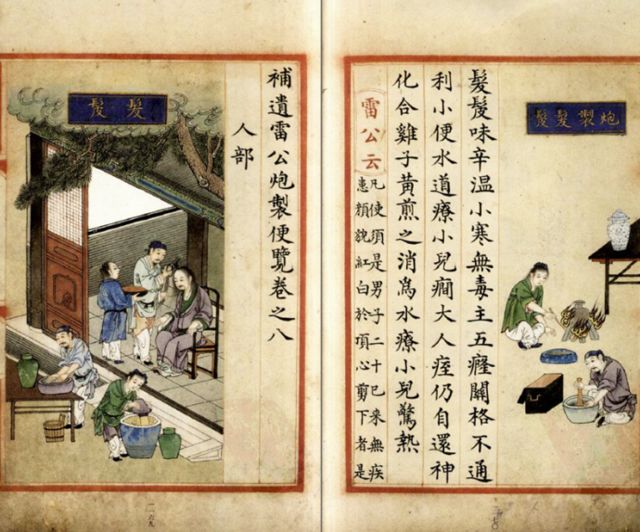 補遺雷公炮製便覽卷之八
人部
髮髲
一六九
炮製髮髲
髮髲味辛溫小寒無毒主五癃關格不通
利小便水道療小兒癇大人痓仍自還神
化合雞子黃煎之消爲水療小兒驚熱
雷公云
凡使須是男子二十已來無疾
患顏貌紅白於頂心剪下者是
一七〇